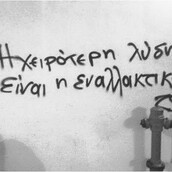 Η χειρότερη λύση
είναι η εναλλακτικ